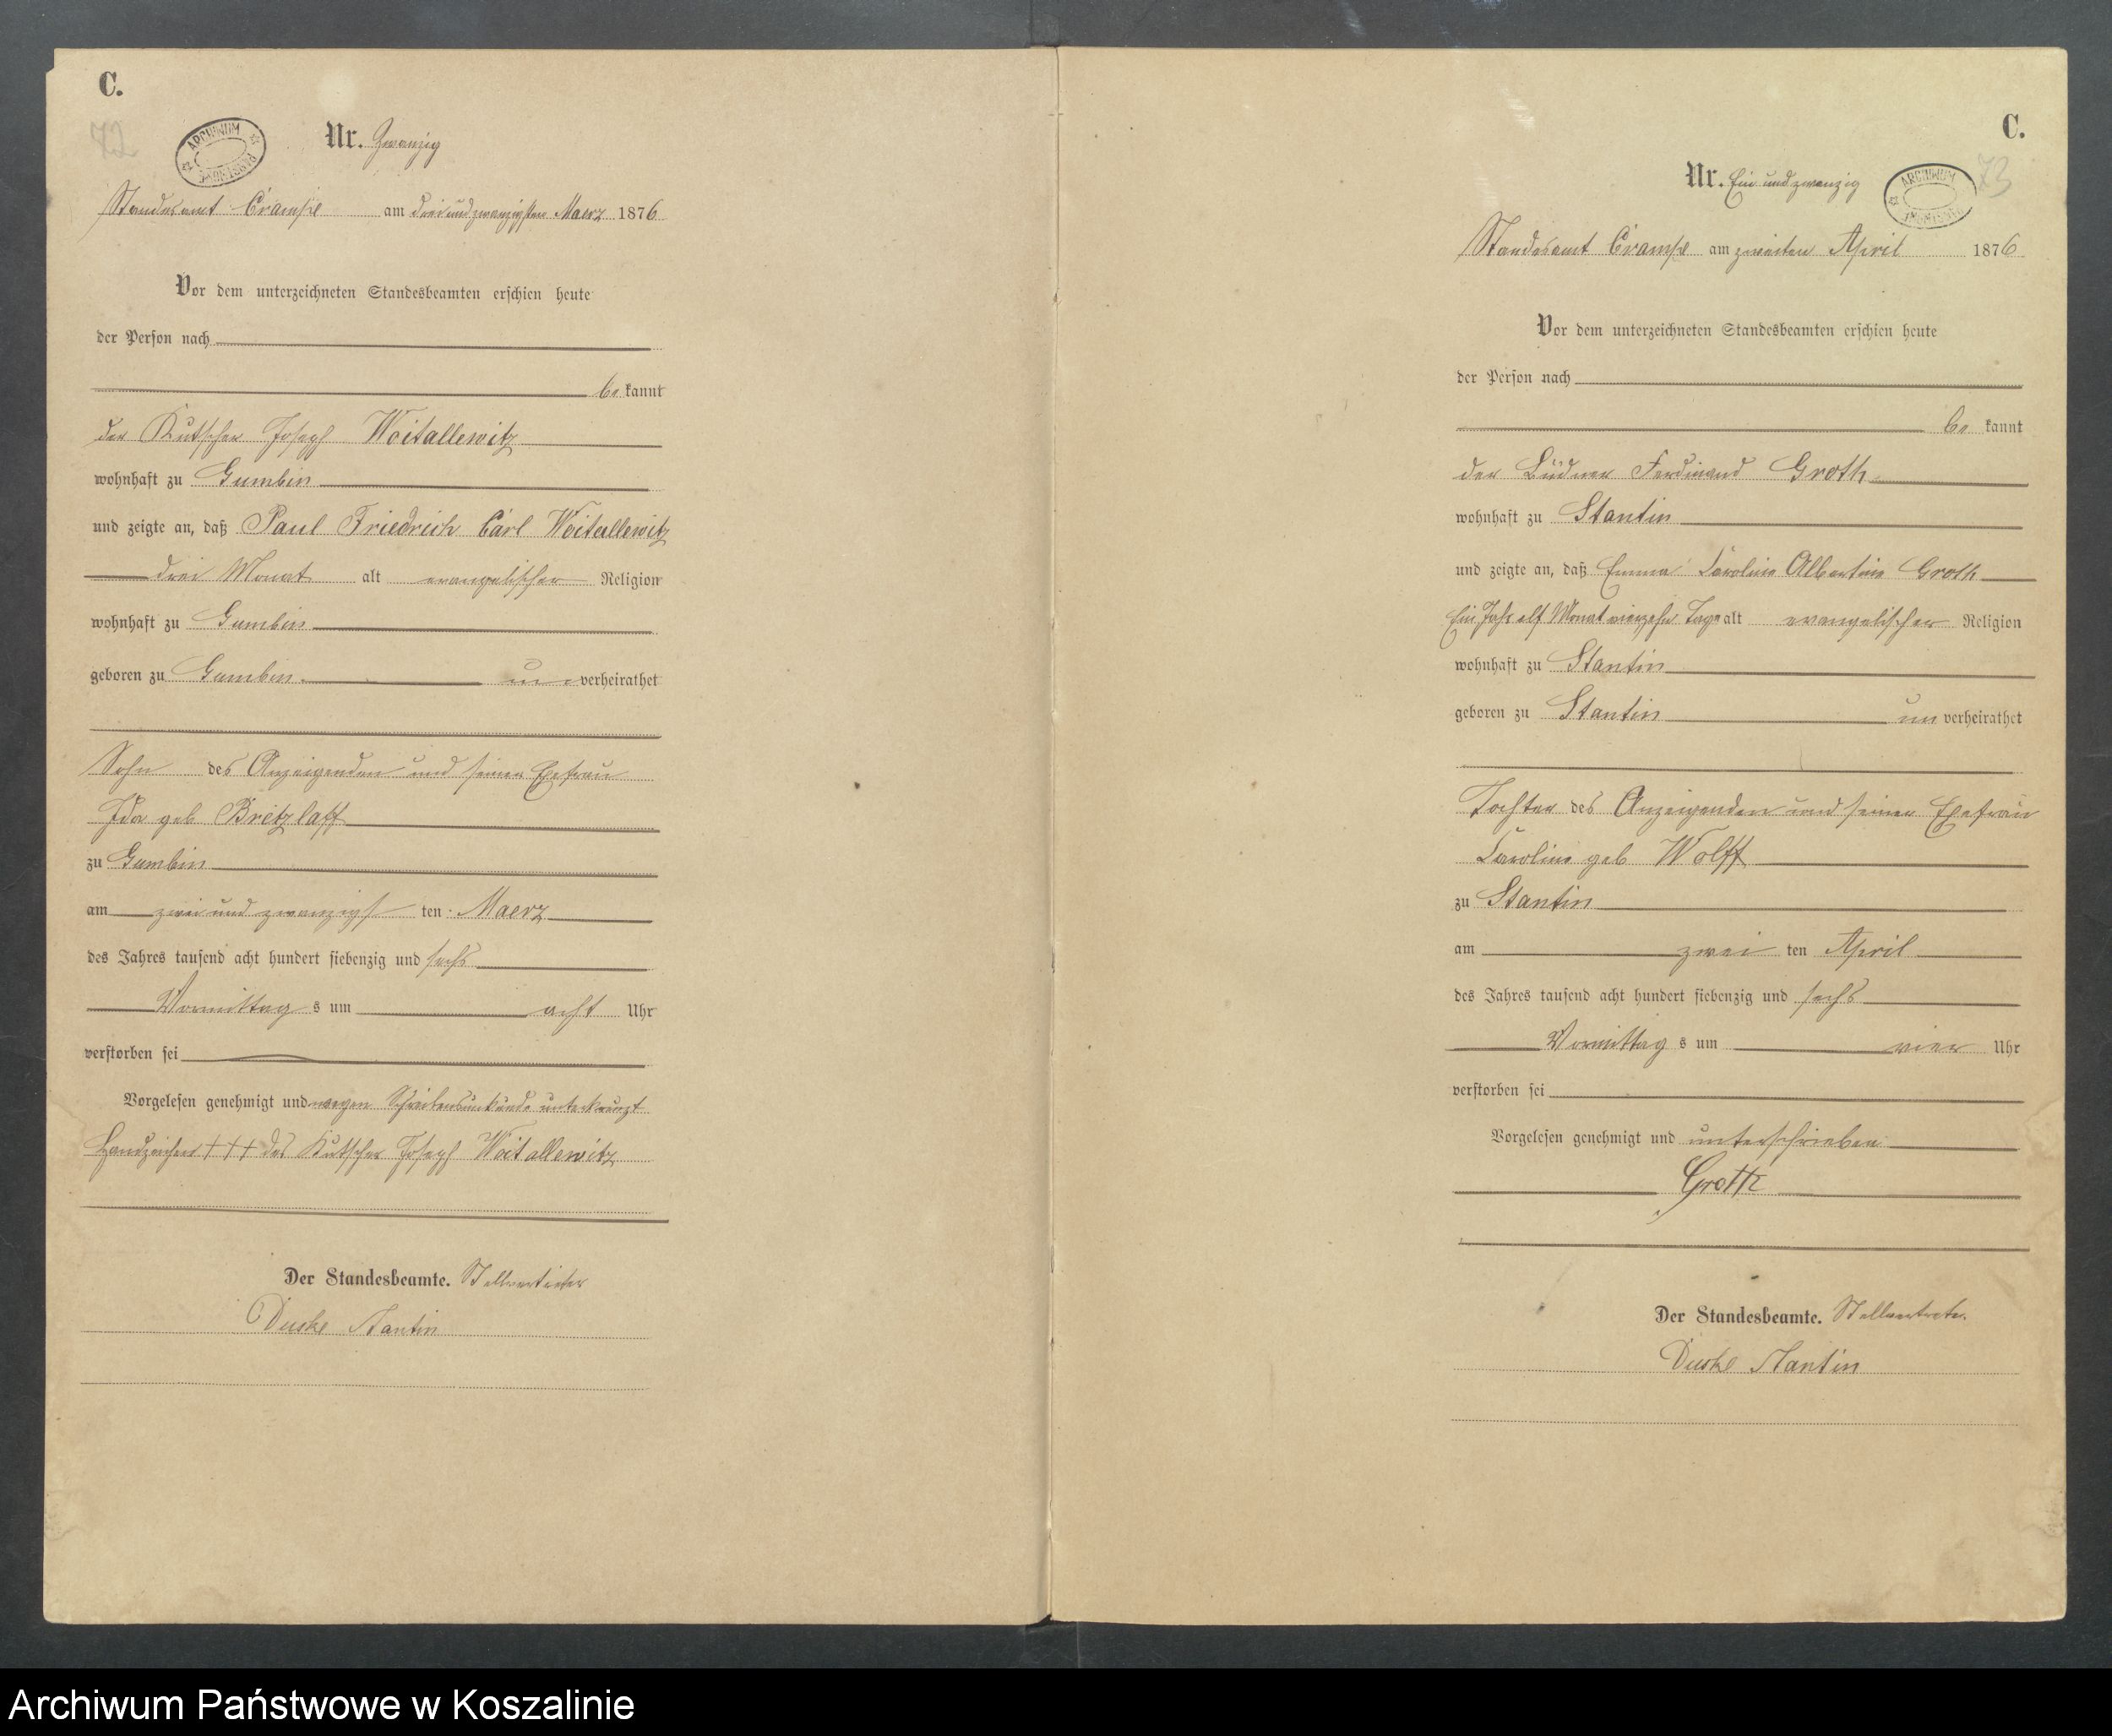 C.
72
ARCHIWUM
Nr. Zwanzig
Standesamt Crampe am dreiundzwanzigsten Maerz 1876
Vor dem unterzeichneten Standesbeamten erschien heute
der Person nach
be kannt
der Kutscher Joseph Woitallewitz
wohnhaft zu Gumbin
und zeigte an, daß Paul Friedrich Carl Woitallewitz
drei Monat alt evangelischer Religion
wohnhaft zu Gumbin
geboren zu Gumbin un verheirathet
Sohn des Anzeigenden und seiner Ehefrau
Ida geb Bretzlaff
zu Gumbin
am zwei und zwanzigs ten Maerz
des Jahres tausend acht hundert siebenzig und sechs
Vormittag s um acht Uhr
verstorben sei
Vorgelesen genehmigt und wegen Schreibensunkunde unterkreuzt
Handzeichen +++ des Kutscher Joseph Woitallewitz
Der Standesbeamte. Stellvertreter
Duske Stantin
C.
73
ARCHIWUM
Nr. Ein und zwanzig
Standesamt Crampe am zweiten April 1876
Vor dem unterzeichneten Standesbeamten erschien heute
der Person nach
be kannt
der Büdner Ferdinand Groth
wohnhaft zu Stantin
und zeigte an, daß Emma Caroline Albertine Groth
Ein Jahr elf Monat vierzehn Tage alt evangelischer Religion
wohnhaft zu Stantin
geboren zu Stantin un verheirathet
Tochter des Anzeigenden und seiner Ehefrau
Caroline geb Wolff
zu Stantin
am zwei ten April
des Jahres tausend acht hundert siebenzig und sechs
Vormittag s um vier Uhr
verstorben sei
Vorgelesen genehmigt und unterschrieben
Groth
Der Standesbeamte. Stellvertreter.
Duske Stantin
Archiwum Państwowe w Koszalinie